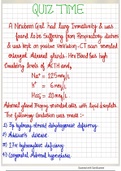 QUIZ TIME
A Newborn Girl had lung Immaturity & was
found to be Suffering from Respiratory distress
& was kept on positive Ventilation. CT scan revealed
enlarged Adrenal glands. Her Blood has high
Circulating levels of ACTH and,
Na⁺ = 125 meq/L
K⁺ = 6 meq/L
HCO₃⁻ = 20 meq/L
Adrenal gland Biopsy revealed cells with lipid droplets
The following Condition was most :-
A) 3β hydroxy steroid dehydrogenase deficiency
B) Addison's disease
C) 17α hydroxylase deficiency
D) Congenital Adrenal hyperplasia